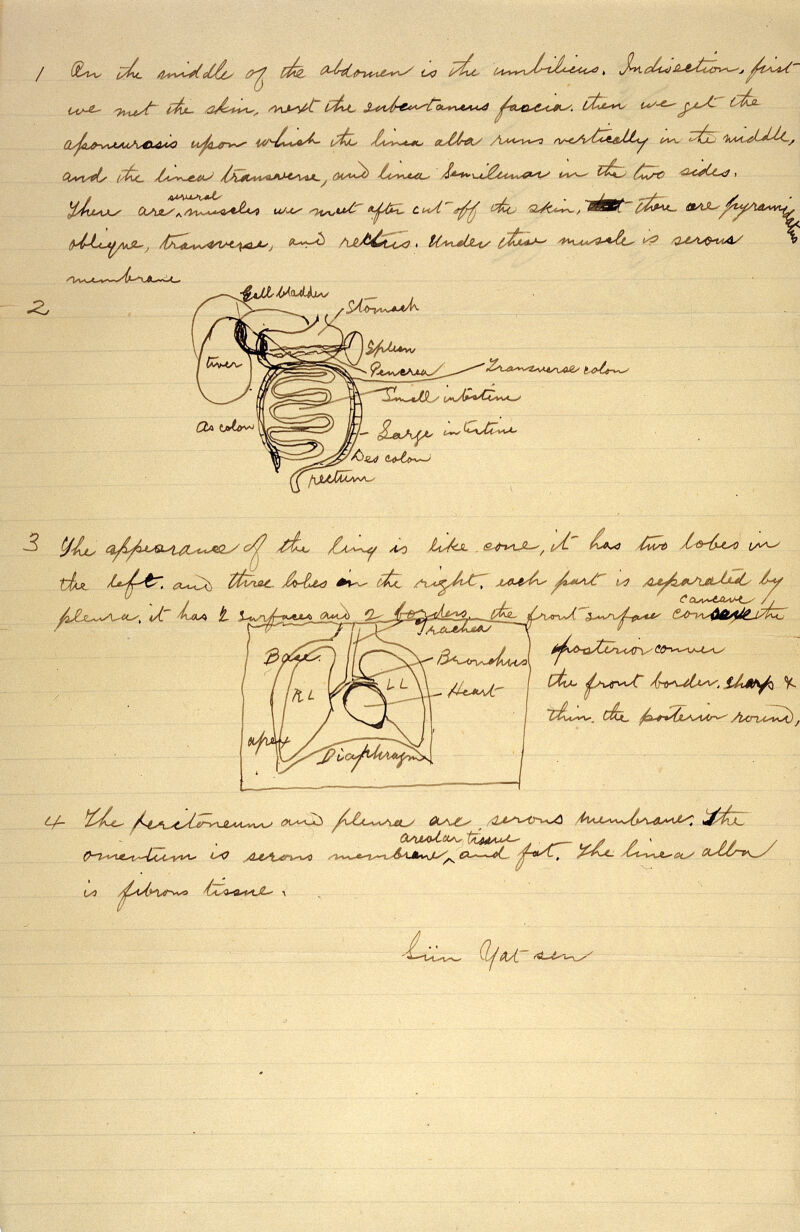 1 On the middle of the abdomen is the umbilicus. Indisection, first
we met the skin, next the subcutaneus fascia. then we get the
aponeurosis upon which the linea alba runs vertically in the middle,
and the linea transverse, and linea Semilunar in the two sides.
There are several muscles we meet after cut off the skin, there are pyramidatus
oblique, transverse, and rectus. Under these muscle is serous
membrane
2
Gall bladder
Stomach
liver
Spleen
Pencrea
Transverse colon
Small intestine
As colon
Large intestine
Des colon
rectum
3 The appearance of the ling is like cone, it has two lobes in
the left. and three lobes in the right. each part is separated by
pleura. it has 2 surfaces and 2 borders. the front surface concave the
Trachea
Base.
Bronchus
posterior conver
RL
LL
Heart
the front border. sharp &
thin. the posterior round,
apex
Diaphragm
4 The peritoneum and pleura are serous membrane. The
omentum is serous membrane, areolar tissue and fat. The linea alba
is fibrous tissue.
Sün Yat sen